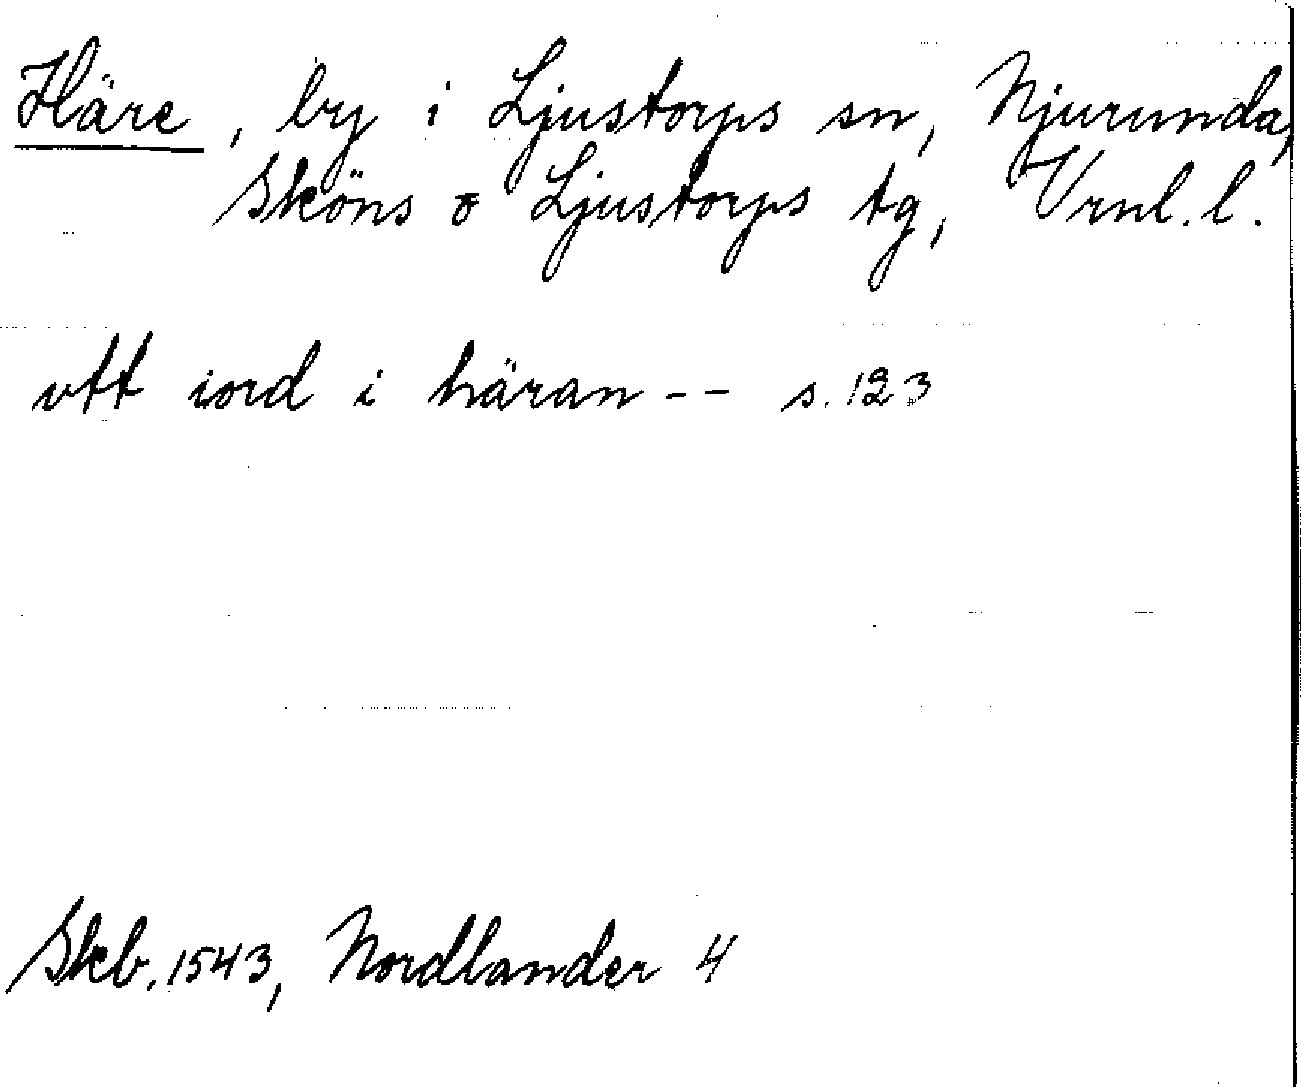 Häre, by i Ljustorps sn, Njurunda,
Sköns o Ljustorps tg, Vrnl. l.
vtt iord i häran - - s. 123
Skb. 1543, Nordlander 4